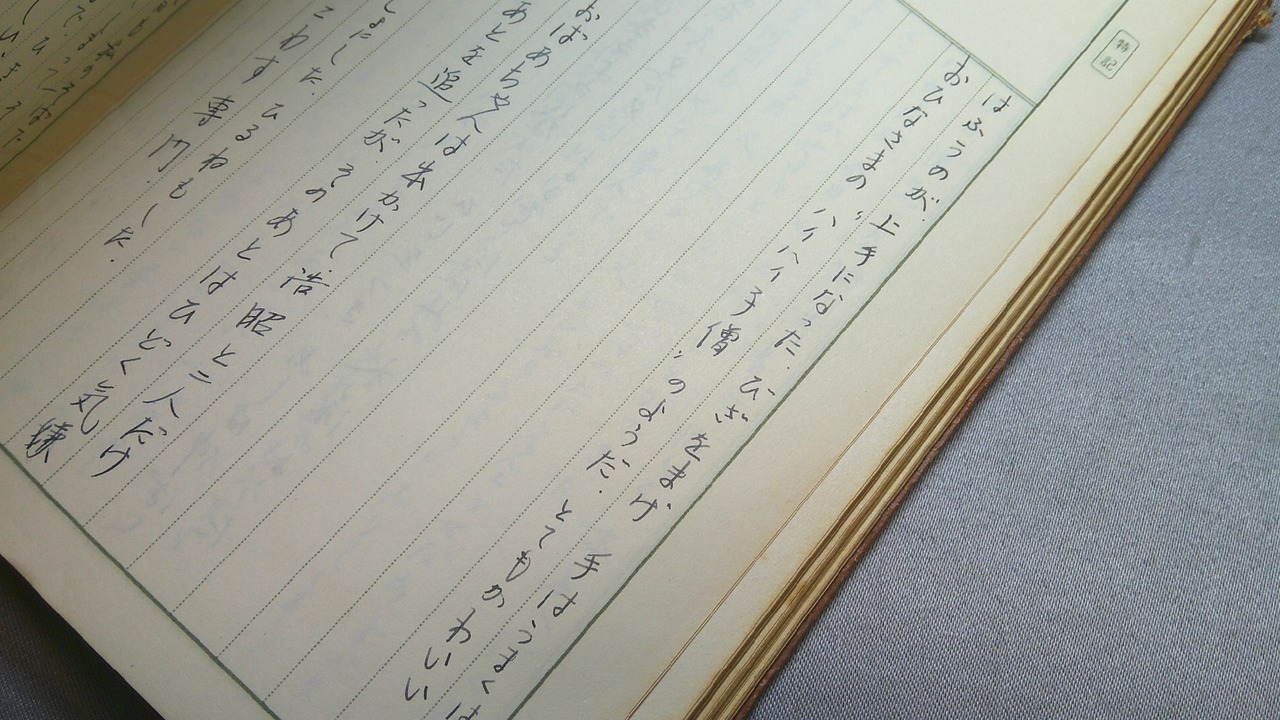 特記
はふうのが、上手になった。ひざをまげ 手はうまくは
おひなさまの〝ハイハイ子僧〟のようだ。とてもかわいい
おばあちゃんは出かけて 浩昭と二人だけ
あとを追ったが、そのあとはひどく気嫌
しょにした。ひるねもした。
こわす専門。